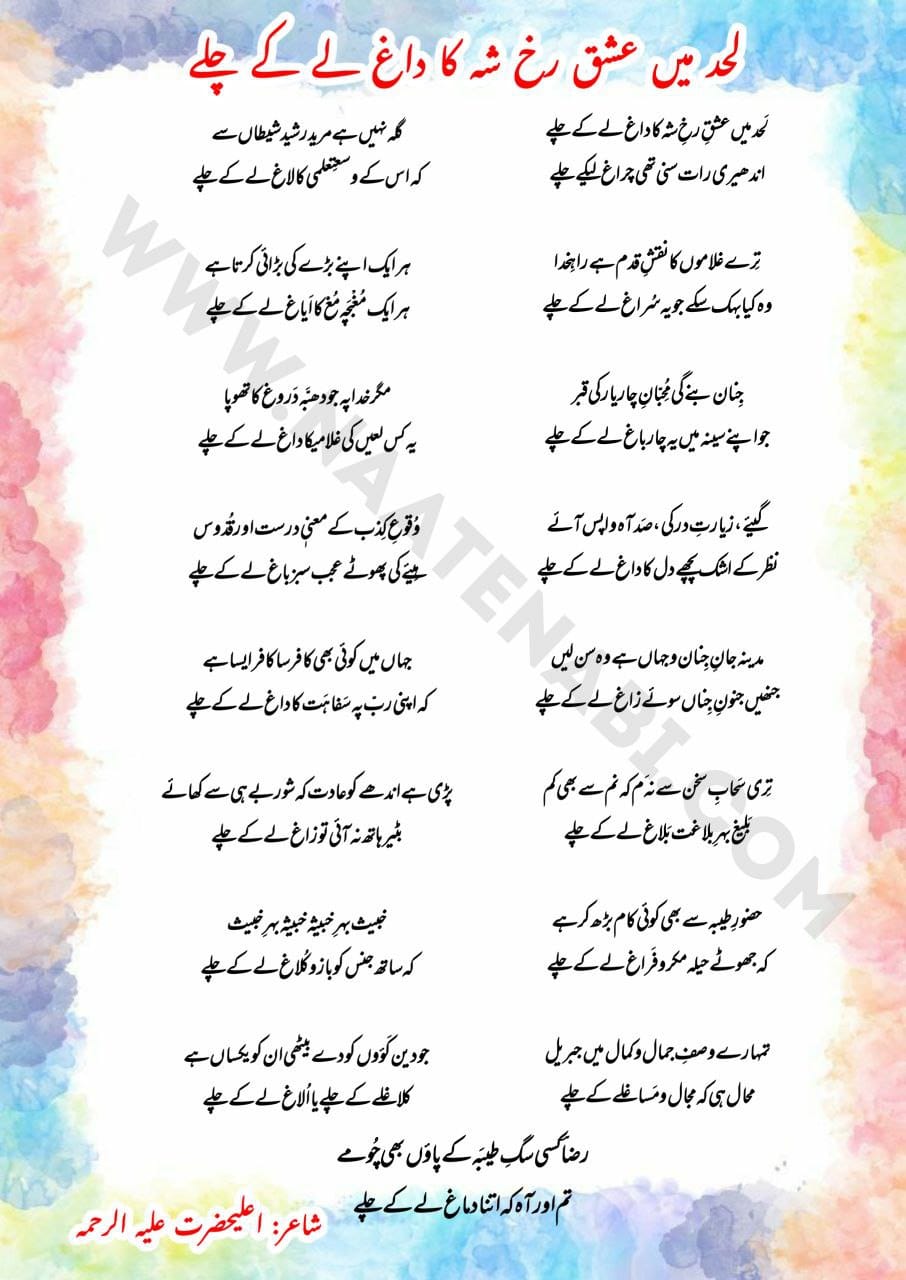 لحد میں عشق رخ شہ کا داغ لے کے چلے
لَحَد میں عشقِ رخِ شہ کا داغ لے کے چلے
اندھیری رات سنی تھی چراغ لیکے چلے
تِرے غلاموں کا نقشِ قدم ہے راہِخدا
وہ کیا بہک سکے جو یہ سُراغ لے کے چلے
جِنان بنے گی مُحِبّانِ چار یار کی قبر
جو اپنے سینہ میں یہ چار باغ لے کے چلے
گیئے، زیارتِ در کی، صَد آہ واپس آئے
نظر کے اشک پچھے دل کا داغ لے کے چلے
مدینہ جانِ جِنان و جہاں ہے وہ سن لیں
جنھیں جنونِ جِناں سوئے زاغ لے کے چلے
تِری سَحابِ سخن سے نہ نَم کہ نم سے بھی کم
بَلیغ بہرِ بلاغت بَلاغ لے کے چلے
حضورِ طیبہ سے بھی کوئی کام بڑھ کر ہے
کہ جھوٹے حیلہ مکر و فَراغ لے کے چلے
تمہارے وصفِ جمال و کمال میں جبریل
محال ہی کہ مجال و مَساغ لے کے چلے
گلہ نہیں ہے مرید رشید شیطاں سے
کہ اس کے وسعتِعلمی کا لاغ لے کے چلے
ہر ایک اپنے بڑے کی بڑائی کرتا ہے
ہر ایک مُغْبَچہ مُغ کا اَیاغ لے کے چلے
مگر خدا پہ جو دھبّہ دَروغ کا تھوپا
یہ کس لعیں کی غلامیکا داغ لے کے چلے
وُقوعِ کِذب کے معنیٖ درست اور قُدّوس
ہیئے کی پھوٹے عجب سبز باغ لے کے چلے
جہاں میں کوئی بھی کافر سا کافر ایسا ہے
کہ اپنی ربّ پہ سَفاہَت کا داغ لے کے چلے
پڑی ہے اندھے کو عادت کہ شوربے ہی سے کھائے
بٹیر ہاتھ نہ آئی تو زاغ لے کے چلے
خبیث بہرِ خبیثہ خبیثہ بہرِ خبیث
کہ ساتھ جنس کو بازو کُلاغ لے کے چلے
جو دین کَوّوں کو دے بیٹھی ان کو یکساں ہے
کلاغ لے کے چلے یا اُلاغ لے کے چلے
رضاؔ کسی سگِ طیبَہ کے پاؤں بھی چُومے
تم اور آہ کہ اتنا دماغ لے کے چلے
شاعر: اعلیحضرت علیہ الرحمہ
WWW.NAATENABI.COM